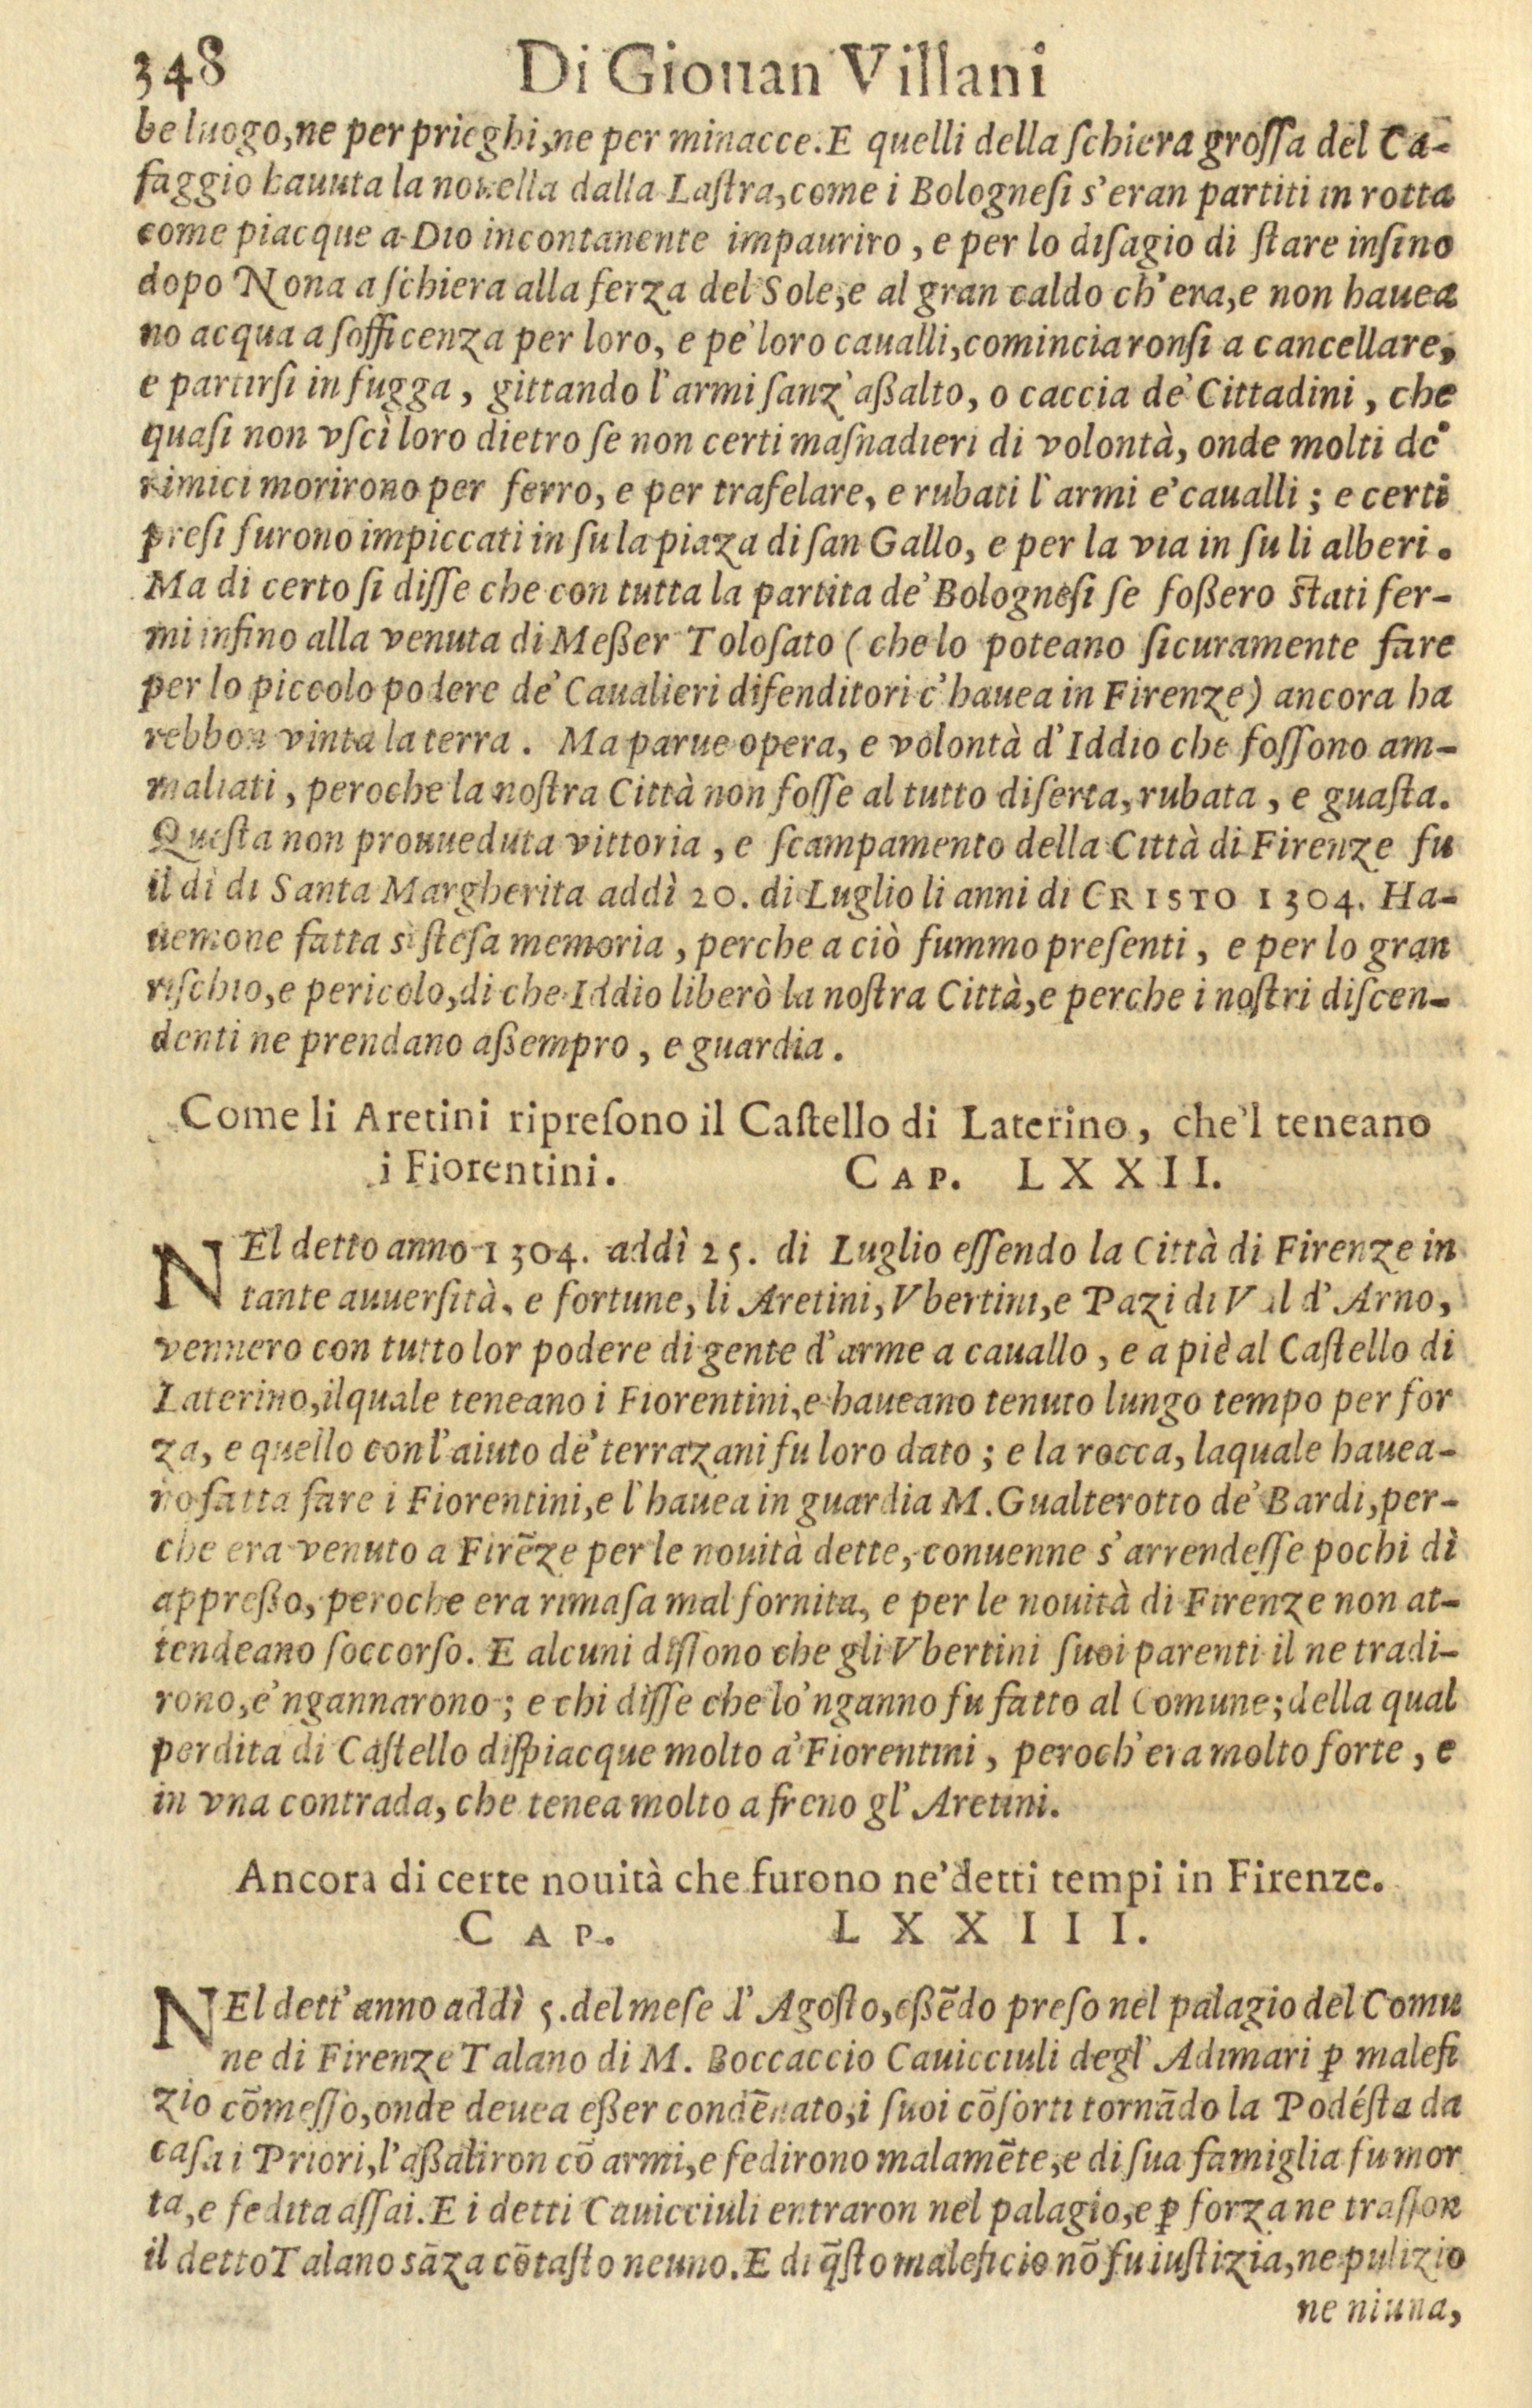 348 Di Giouan Villani
be luogo, ne per prieghi, ne per minacce. E quelli della ſchiera groſſa del Ca-
faggio hauuta la nouella dalla Laſtra, come i Bologneſi s'eran partiti in rotta
come piacque a Dio incontanente impauriro, e per lo diſagio di ſtare inſino
dopo Nona a ſchiera alla ferza del Sole, e al gran caldo ch'era, e non hauea
no acqua a ſofficenza per loro, e pe' loro caualli, cominciaronſi a cancellare,
e partirſi in fugga, gittando l'armi ſanz'aßalto, o caccia de' Cittadini, che
quaſi non vſcì loro dietro ſe non certi maſnadieri di volontà, onde molti de'
nimici morirono per ferro, e per trafelare, e rubati l'armi e' caualli; e certi
preſi furono impiccati in ſu la piaza di ſan Gallo, e per la via in ſu li alberi.
Ma di certo ſi diſſe che con tutta la partita de' Bologneſi ſe foßero ſtati fer-
mi infino alla venuta di Meßer Toloſato (che lo poteano ſicuramente fare
per lo piccolo podere de' Caualieri difenditori c'hauea in Firenze) ancora ha
rebbon vinta la terra. Ma parue opera, e volontà d'Iddio che foſſono am-
maliati, peroche la noſtra Città non foſſe al tutto diſerta, rubata, e guaſta.
Queſta non proueduta vittoria, e ſcampamento della Città di Firenze fu
il dì di Santa Margherita addì 20. di Luglio li anni di CRISTO 1304. Ha-
uemone fatta sì steſa memoria, perche a ciò fummo preſenti, e per lo gran
riſchio, e pericolo, di che Iddio liberò la noſtra Città, e perche i noſtri diſcen-
denti ne prendano aßempro, e guardia.
Come li Aretini ripreſono il Caſtello di Laterino, che'l teneano
i Fiorentini. CAP. LXXII.
NEl detto anno 1304. addì 25. di Luglio eſſendo la Città di Firenze in
tante auuerſità, e fortune, li Aretini, Vbertini, e Pazi di Val d'Arno,
vennero con tutto lor podere di gente d'arme a cauallo, e a piè al Caſtello di
Laterino, ilquale teneano i Fiorentini, e haueano tenuto lungo tempo per for
za, e quello con l'aiuto de' terrazani fu loro dato; e la rocca, laquale hauea-
no fatta fare i Fiorentini, e l'hauea in guardia M. Gualterotto de' Bardi, per-
che era venuto a Firēze per le nouità dette, conuenne s'arrendeſſe pochi dì
appreßo, peroche era rimaſa mal fornita, e per le nouità di Firenze non at-
tendeano ſoccorſo. E alcuni diſſono che gli Vbertini ſuoi parenti il ne tradi-
rono, e'ngannarono; e chi diſſe che lo'nganno fu fatto al Comune; della qual
perdita di Caſtello diſpiacque molto a' Fiorentini, peroch'era molto forte, e
in vna contrada, che tenea molto a freno gl'Aretini.
Ancora di certe nouità che furono ne' detti tempi in Firenze.
CAP. LXXIII.
NEl dett'anno addì 5. del mese d'Agoſto, eßēdo preſo nel palagio del Comu
ne di Firenze Talano di M. Boccaccio Cauicciuli degl'Adimari ꝑ malefi
zio cōmeſſo, onde deuea eßer condēnato, i ſuoi cōſorti tornādo la Podéſta da
caſa i Priori, l'aßaliron cō armi, e fedirono malamēte, e di ſua famiglia fu mor
ta, e fedita aſſai. E i detti Cauicciuli entraron nel palagio, e ꝑ forza ne traſſon
il detto Talano sāza cōtaſto neuno. E di q̄ſto maleficio nō fu iuſtizia, ne pulizio
ne niuna,